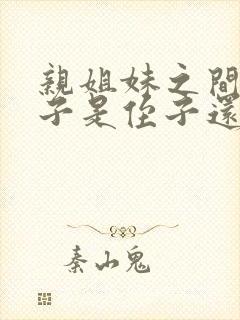 親姐妹之間
子是侄子還
秦山鬼